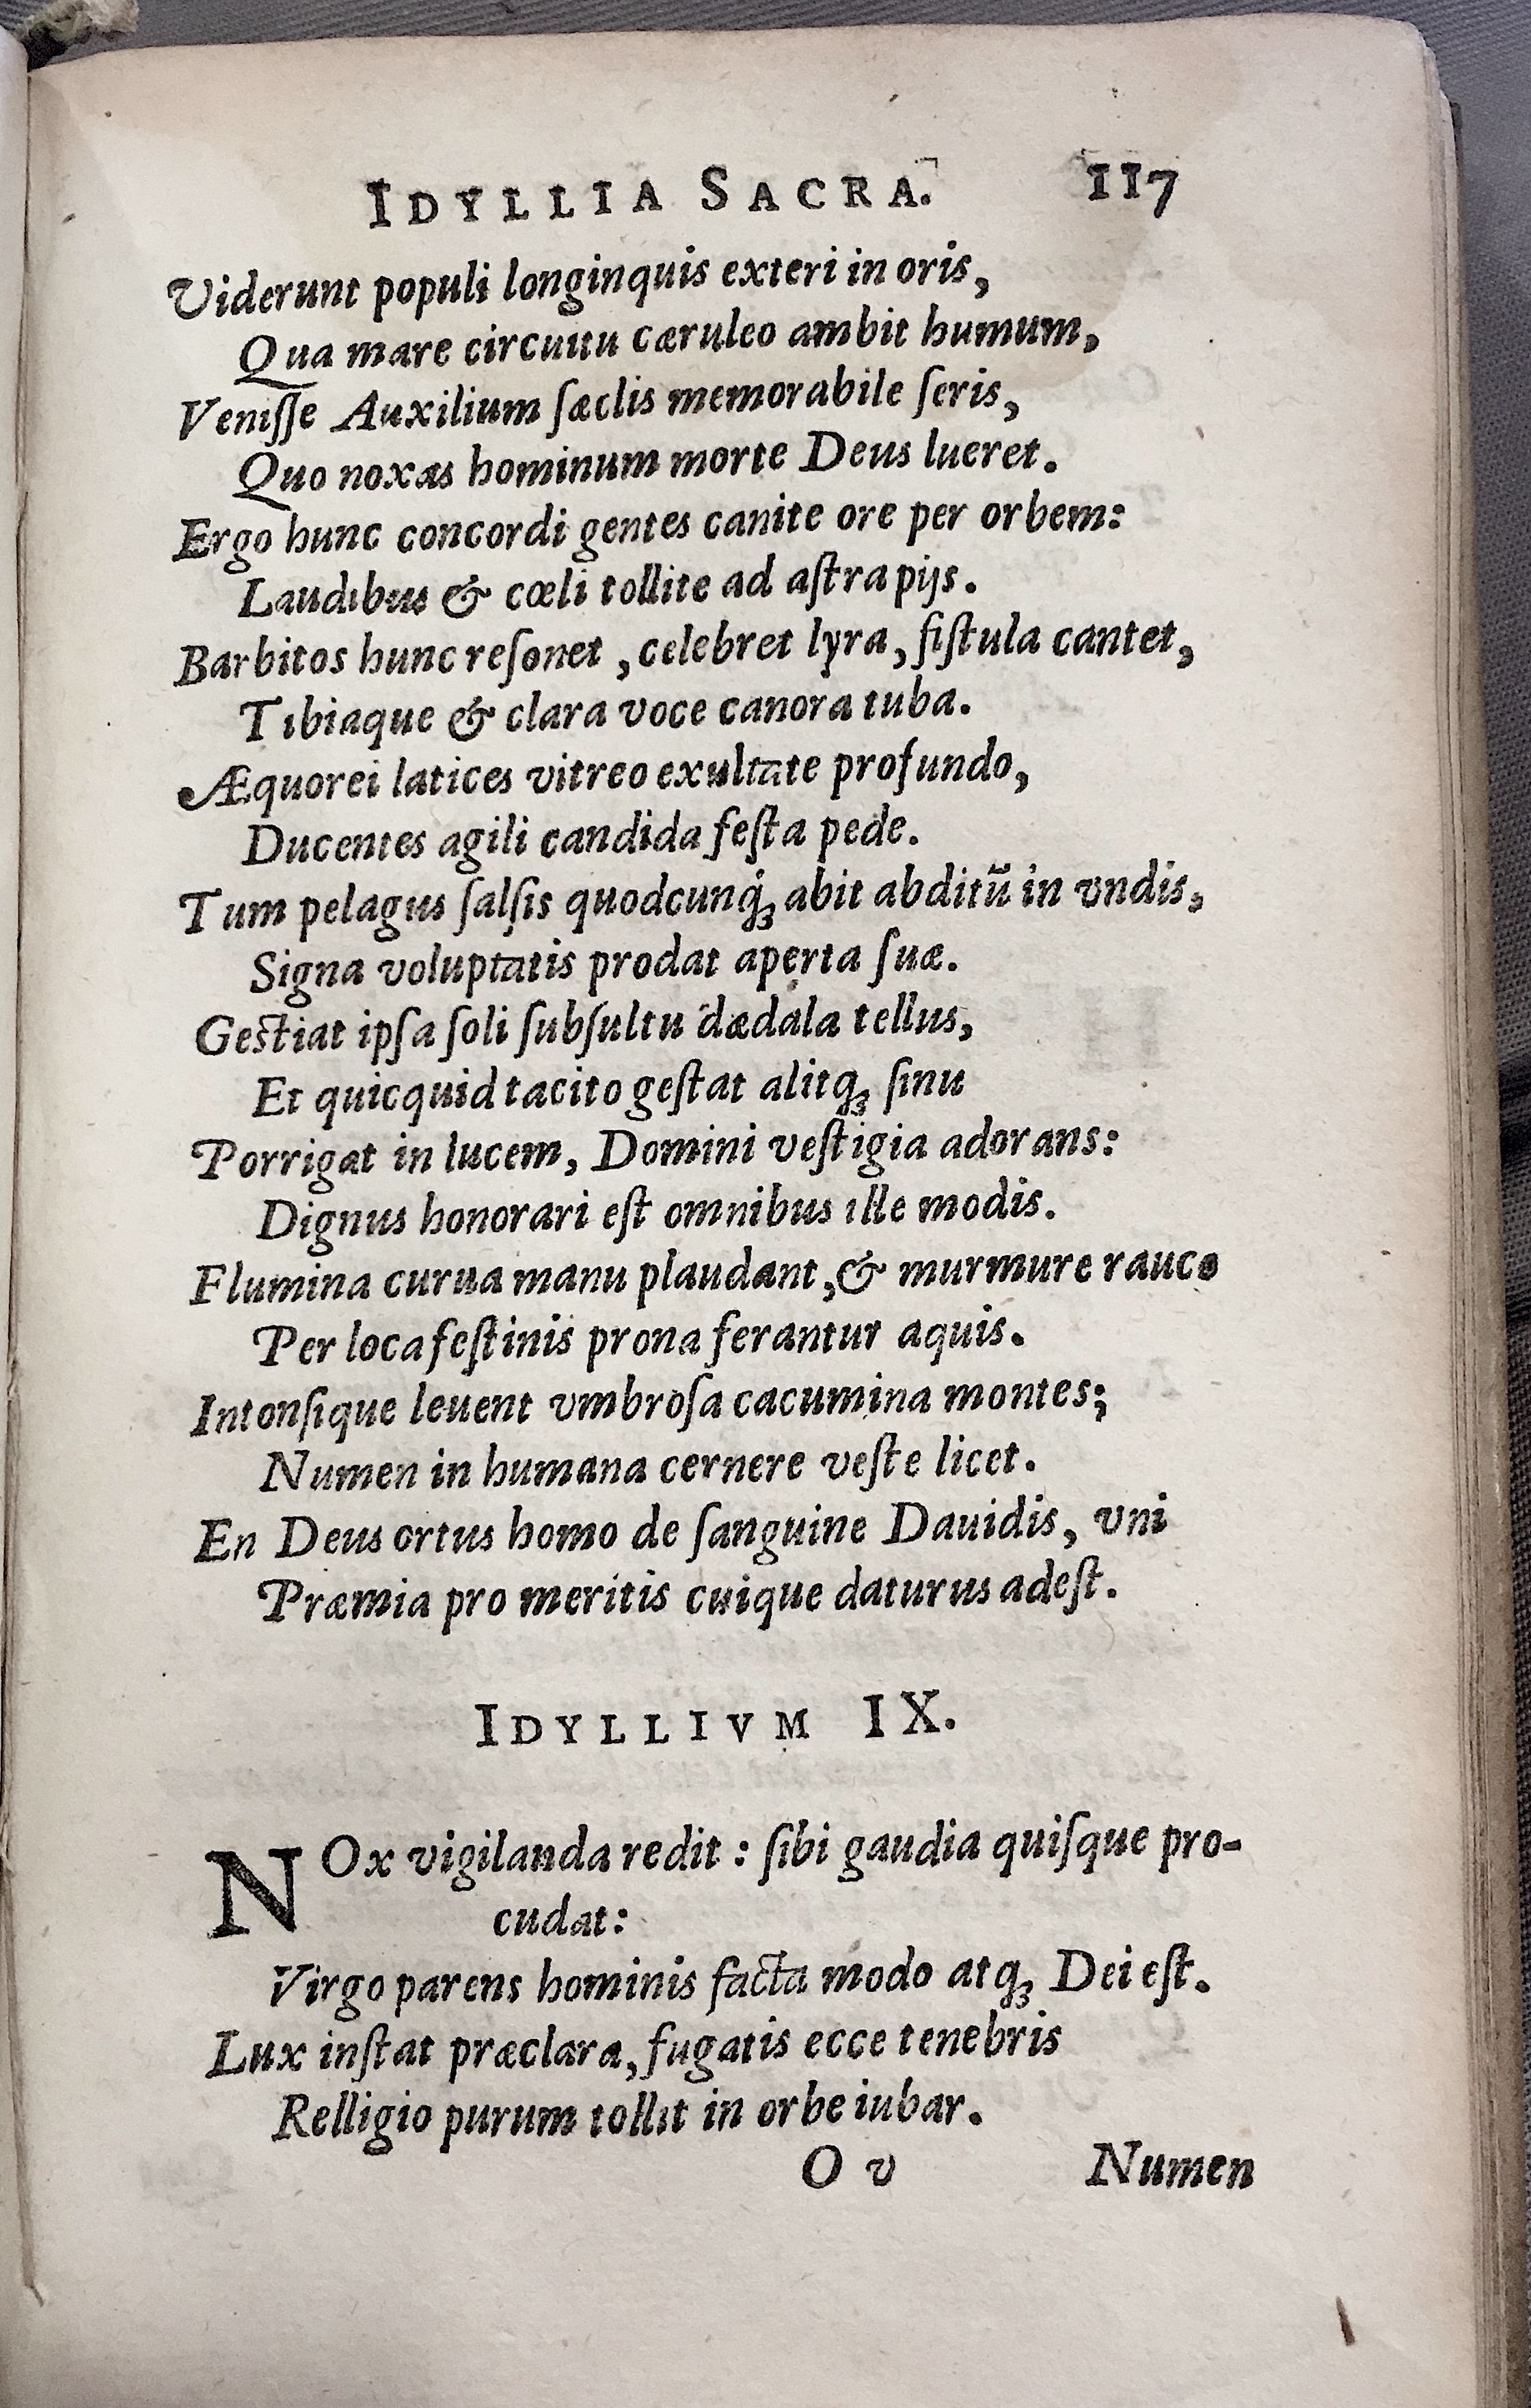 IDYLLIA SACRA. 117
Viderunt populi longinquis exteri in oris,
Qua mare circuitu cæruleo ambit humum,
Veniſſe Auxilium ſæclis memorabile ſeris,
Quo noxas hominum morte Deus lueret.
Ergo hunc concordi gentes canite ore per orbem:
Laudibus & cœli tollite ad aſtra pijs.
Barbitos hunc reſonet, celebret lyra, fiſtula cantet,
Tibiaque & clara voce canora tuba.
Æquorei latices vitreo exultate profundo,
Ducentes agili candida feſta pede.
Tum pelagus ſalſis quodcunq́ꝫ abit abditū in vndis,
Signa voluptatis prodat aperta ſuæ.
Geſtiat ipſa ſoli ſubſultu dædala tellus,
Et quicquid tacito geſtat alitqꝫ ſinu
Porrigat in lucem, Domini veſtigia adorans:
Dignus honorari eſt omnibus ille modis.
Flumina curua manu plaudant, & murmure rauco
Per loca feſtinis prona ferantur aquis.
Intonſique leuent vmbroſa cacumina montes;
Numen in humana cernere veſte licet.
En Deus ortus homo de ſanguine Dauidis, vni
Præmia pro meritis cuique daturus adeſt.
IDYLLIVM IX.
NOx vigilanda redit: ſibi gaudia quiſque pro-
cudat:
Virgo parens hominis facta modo atqꝫ Dei eſt.
Lux inſtat præclara, fugatis ecce tenebris
Relligio purum tollit in orbe iubar.
O v Numen